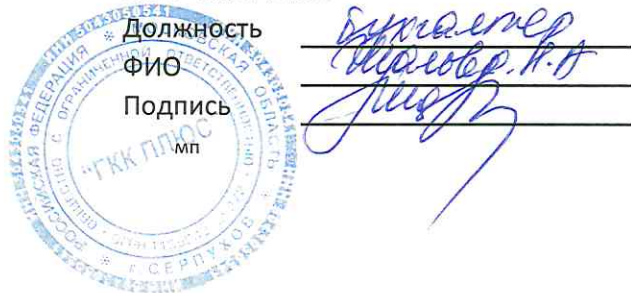 Должность Бухгалтер
ФИО
Подпись
мп
ИНН 5043050541
РОССИЙСКАЯ ФЕДЕРАЦИЯ * МОСКОВСКАЯ ОБЛАСТЬ * г. СЕРПУХОВ *
ОБЩЕСТВО С ОГРАНИЧЕННОЙ ОТВЕТСТВЕННОСТЬЮ
"ГКК ПЛЮС